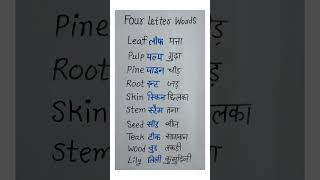 Four Letter Words
Leaf लीफ पत्ता
Pulp पल्प गुद्दा
Pine पाइन चीड़
Root रूट जड़
Skin स्किन छिलका
Stem स्टेम तना
Seed सीड बीज
Teak टीक सागवान
Wood वुड लकड़ी
Lily लिली कुमुदिनी